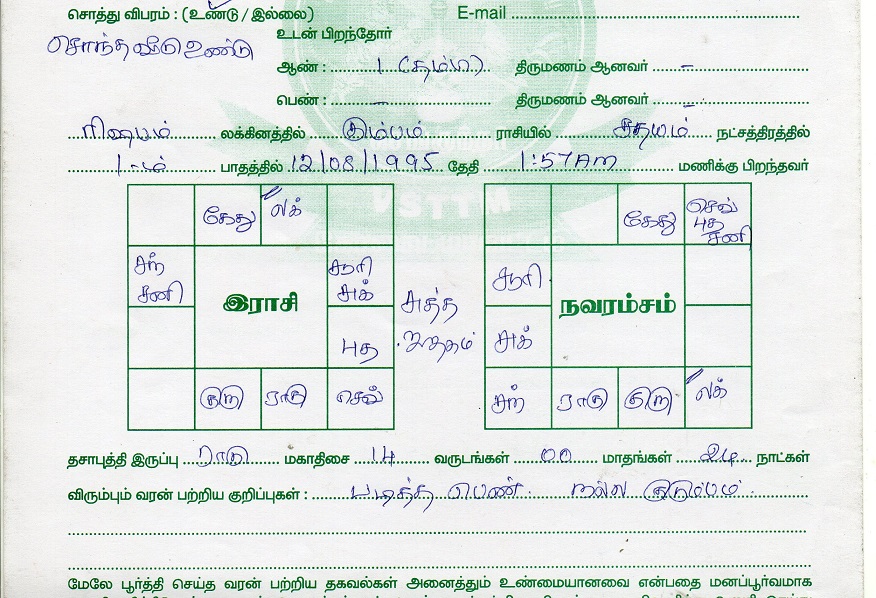 சொத்து விபரம் : (உண்டு / இல்லை) E-mail
சொந்த வீடு உண்டு
உடன் பிறந்தோர்
ஆண் : 1 (தம்பி) திருமணம் ஆனவர் –
பெண் : – திருமணம் ஆனவர் –
ரிஷபம் லக்கினத்தில் கும்பம் ராசியில் சதயம் நட்சத்திரத்தில்
1-ம் பாதத்தில் 12/08/1995 தேதி 1:57 AM மணிக்கு பிறந்தவர்
VSTTM
கேது லக்
சந் சனி
சூரி சுக்
இராசி
புத
குரு ராகு செவ்
சுத்த ஜாதகம்
கேது செவ் புத சனி
சூரி
நவரம்சம்
சுக்
சந் ராகு குரு லக்
தசாபுத்தி இருப்பு ராகு மகாதிசை 14 வருடங்கள் 00 மாதங்கள் 24 நாட்கள்
விரும்பும் வரன் பற்றிய குறிப்புகள் : படித்த பெண் நல்ல குடும்பம்
மேலே பூர்த்தி செய்த வரன் பற்றிய தகவல்கள் அனைத்தும் உண்மையானவை என்பதை மனப்பூர்வமாக